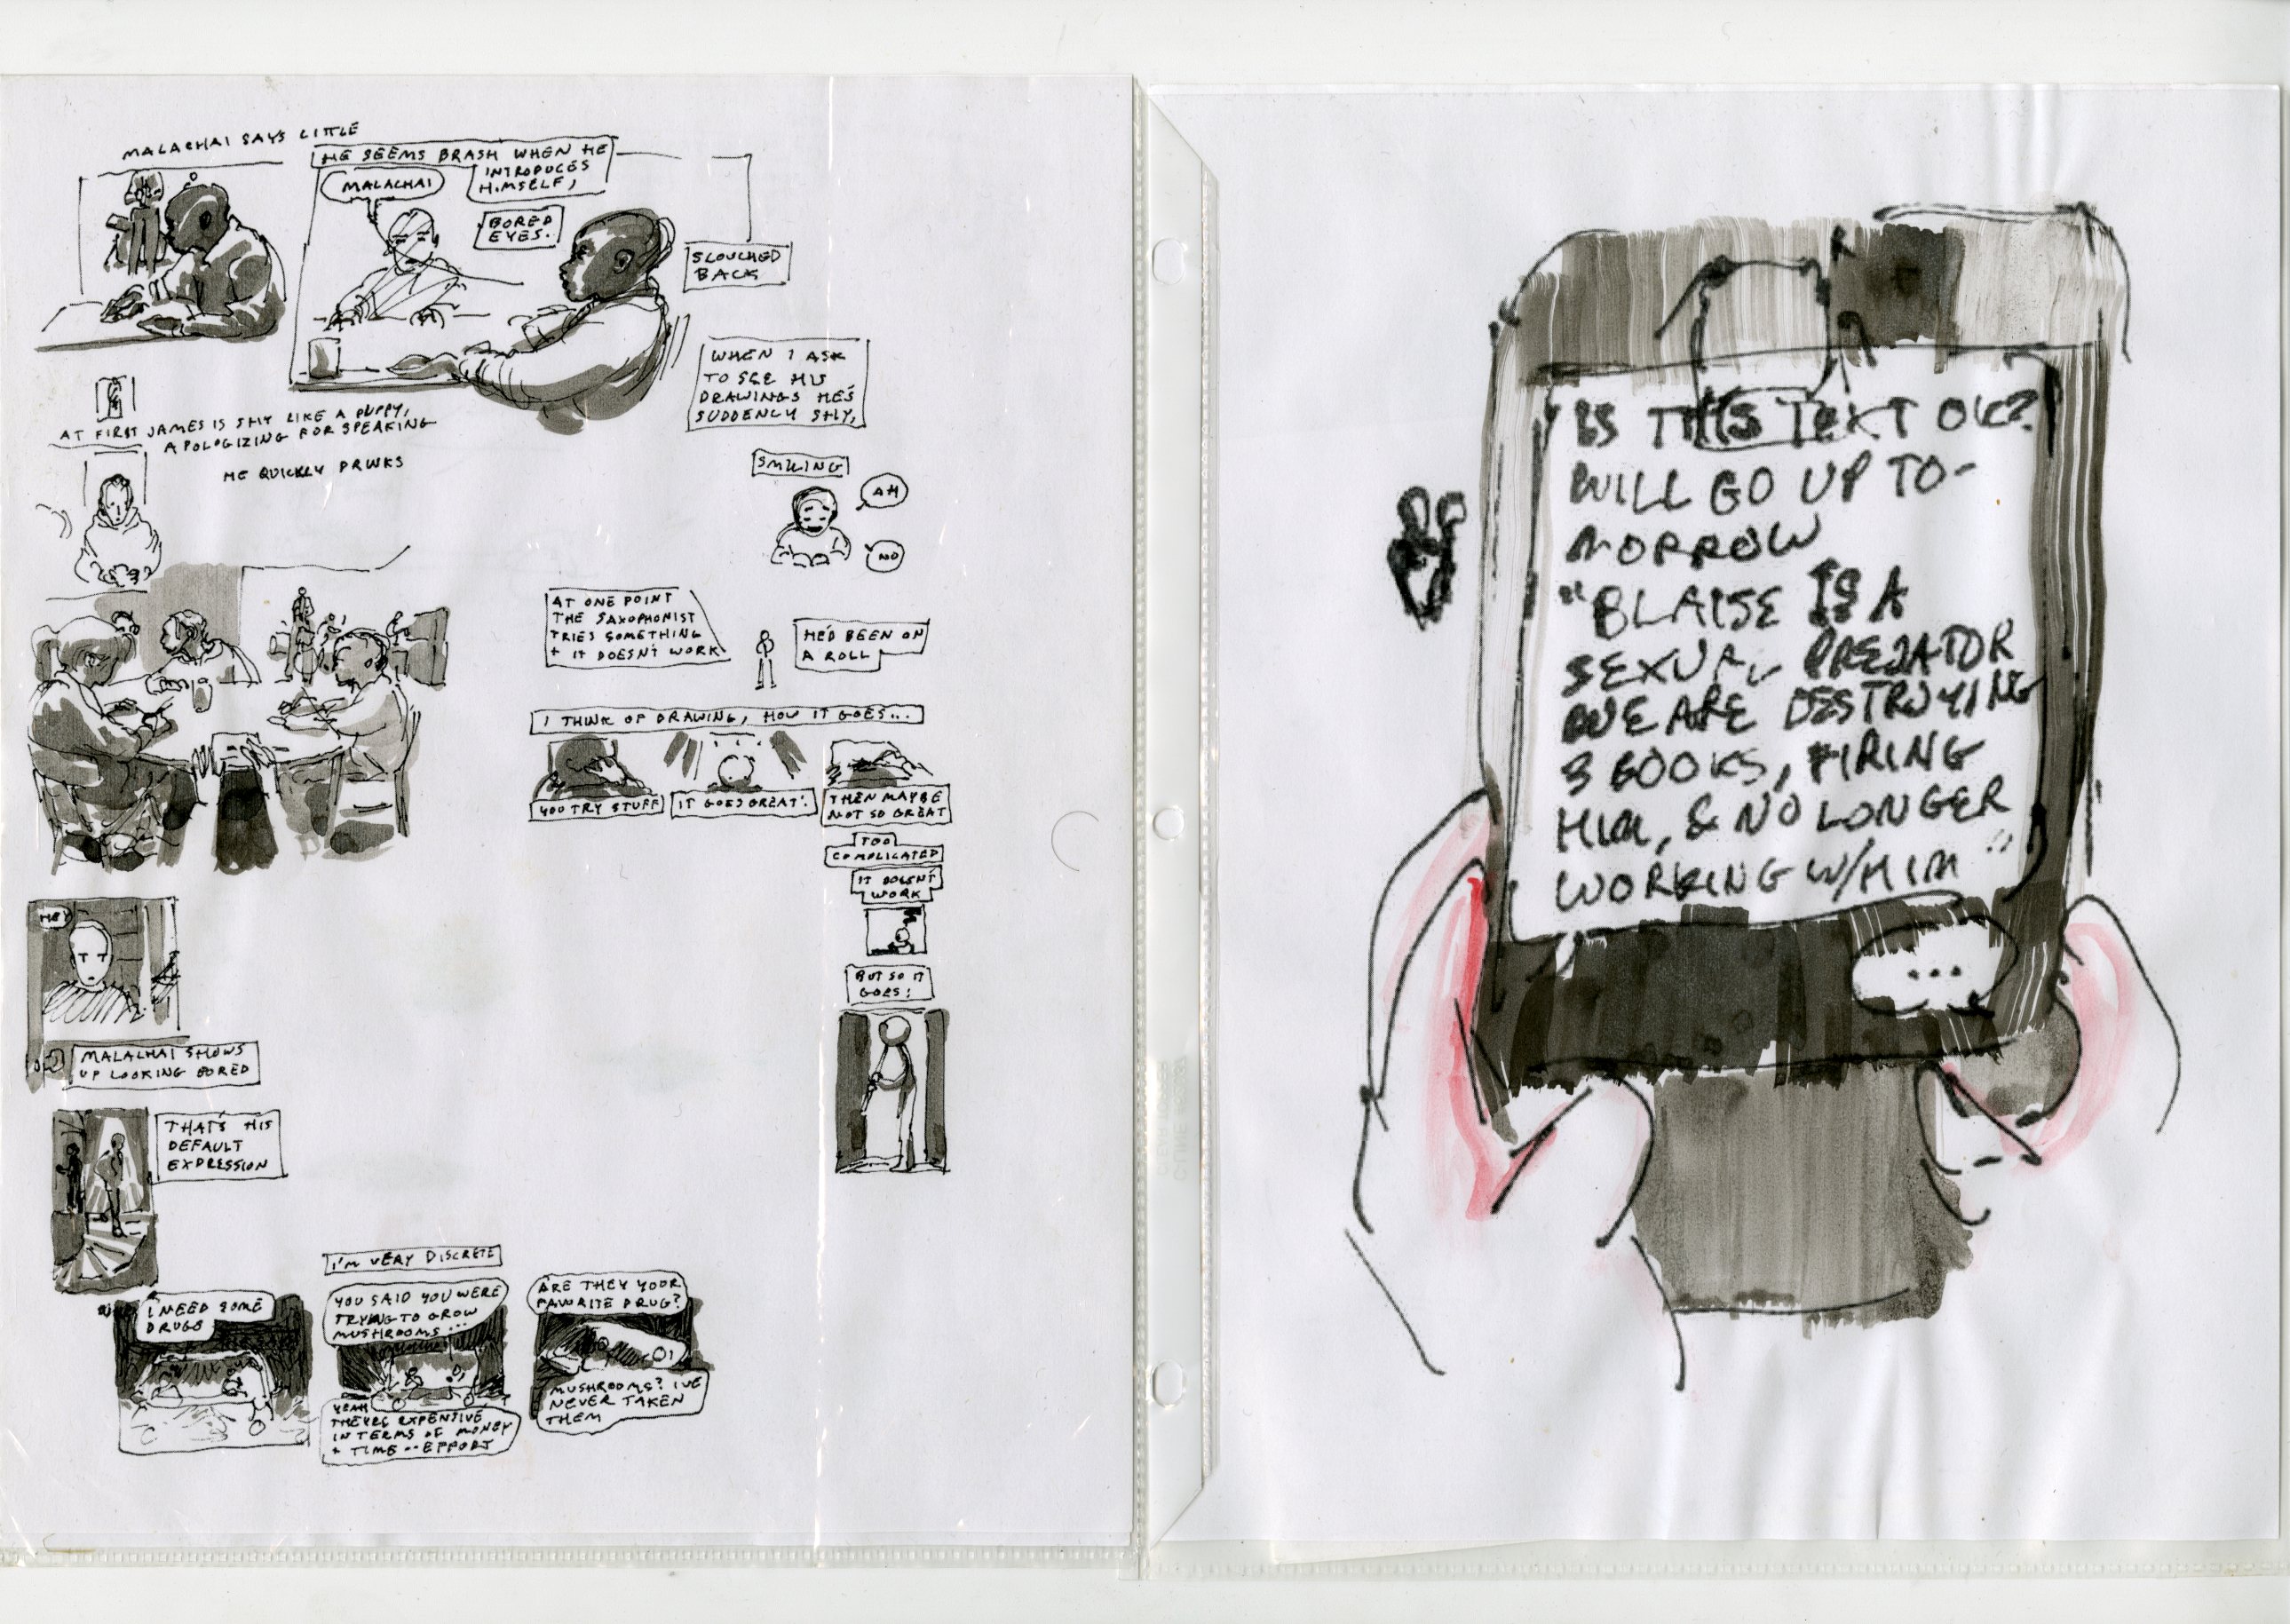 MALACHAI SAYS LITTLE
HE SEEMS BRASH WHEN HE
INTRODUCES
HIMSELF,
MALACHAI
BORED
EYES.
SLOUCHED
BACK
WHEN I ASK
TO SEE HIS
DRAWINGS HE'S
SUDDENLY SHY,
SMILING
AH
NO
AT FIRST JAMES IS SHY LIKE A PUPPY,
APOLOGIZING FOR SPEAKING
HE QUICKLY DRINKS
AT ONE POINT
THE SAXOPHONIST
TRIES SOMETHING
+ IT DOESN'T WORK
HE'D BEEN ON
A ROLL
I THINK OF DRAWING, HOW IT GOES...
YOU TRY STUFF
IT GOES GREAT!
THEN MAYBE
NOT SO GREAT
TOO
COMPLICATED
IT DOESN'T
WORK
BUT SO IT
GOES!
HEY
MALACHAI SHOWS
UP LOOKING BORED
THAT'S HIS
DEFAULT
EXPRESSION
I NEED SOME
DRUGS
I'M VERY DISCRETE
YOU SAID YOU WERE
TRYING TO GROW
MUSHROOMS...
YEAH
THEYRE EXPENSIVE
IN TERMS OF MONEY
+ TIME -- EFFORT
ARE THEY YOUR
FAVORITE DRUG?
MUSHROOMS? I'VE
NEVER TAKEN
THEM
IS THIS TEXT OK?
WILL GO UP TO-
MORROW
"BLAISE IS A
SEXUAL PREDATOR
WE ARE DESTROYING
3 BOOKS, FIRING
HIM, & NO LONGER
WORKING W/HIM"
...